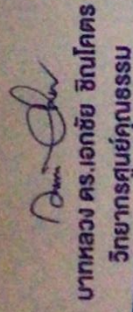 บาทหลวง ดร.เอกชัย ชิณโคตร
วิทยากรศูนย์คุณธรรม